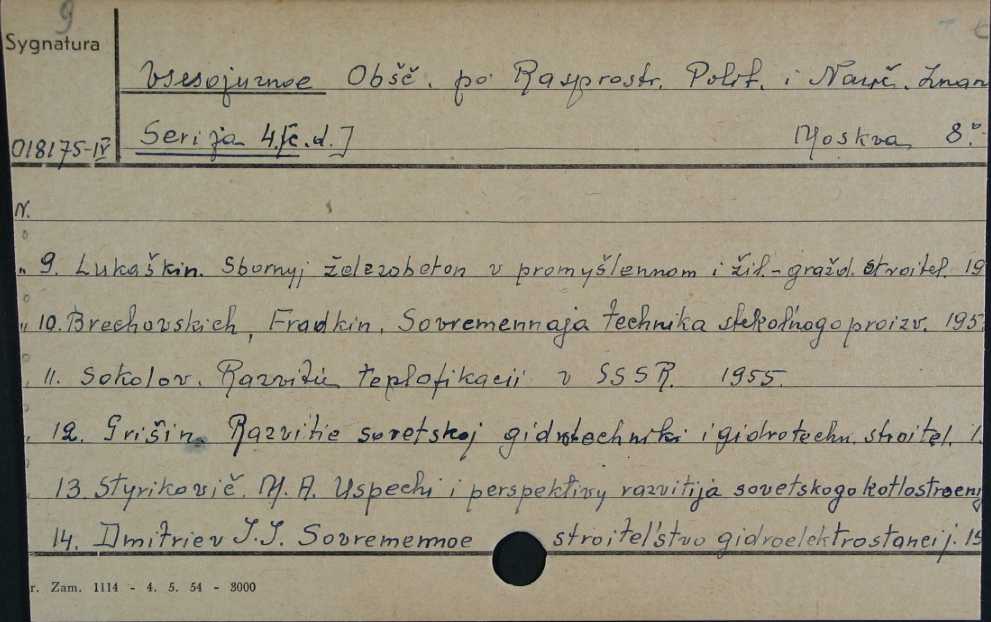 9
Sygnatura
Vsesojuznoe Obšč. po Rasprostr. Polit. i Nauč. Znan
018175-IV Serija 4. [c.d.] Moskva 8°.
N.
" 9. Lukaškin. Sbornyj železobeton v promyšlennom i žil-gražd. stroitel. 19
" 10. Brechovskich, Fradkin, Sovremennaja technika stekol'nogo proizv. 195
" 11. Sokolov. Razvitie teplofikacii v SSSR. 1955.
" 12. Grišin. Razvitie sovetskoj gidrotechniki i gidrotechn. stroitel. 1
13. Styrikovič. M. A. Uspechi i perspektivy razvitija sovetskogo kotlostroenij
14. Dmitriev I. I. Sovremennoe stroitel'stvo gidroelektrostancij. 19
r. Zam. 1114 - 4. 5. 54 - 3000